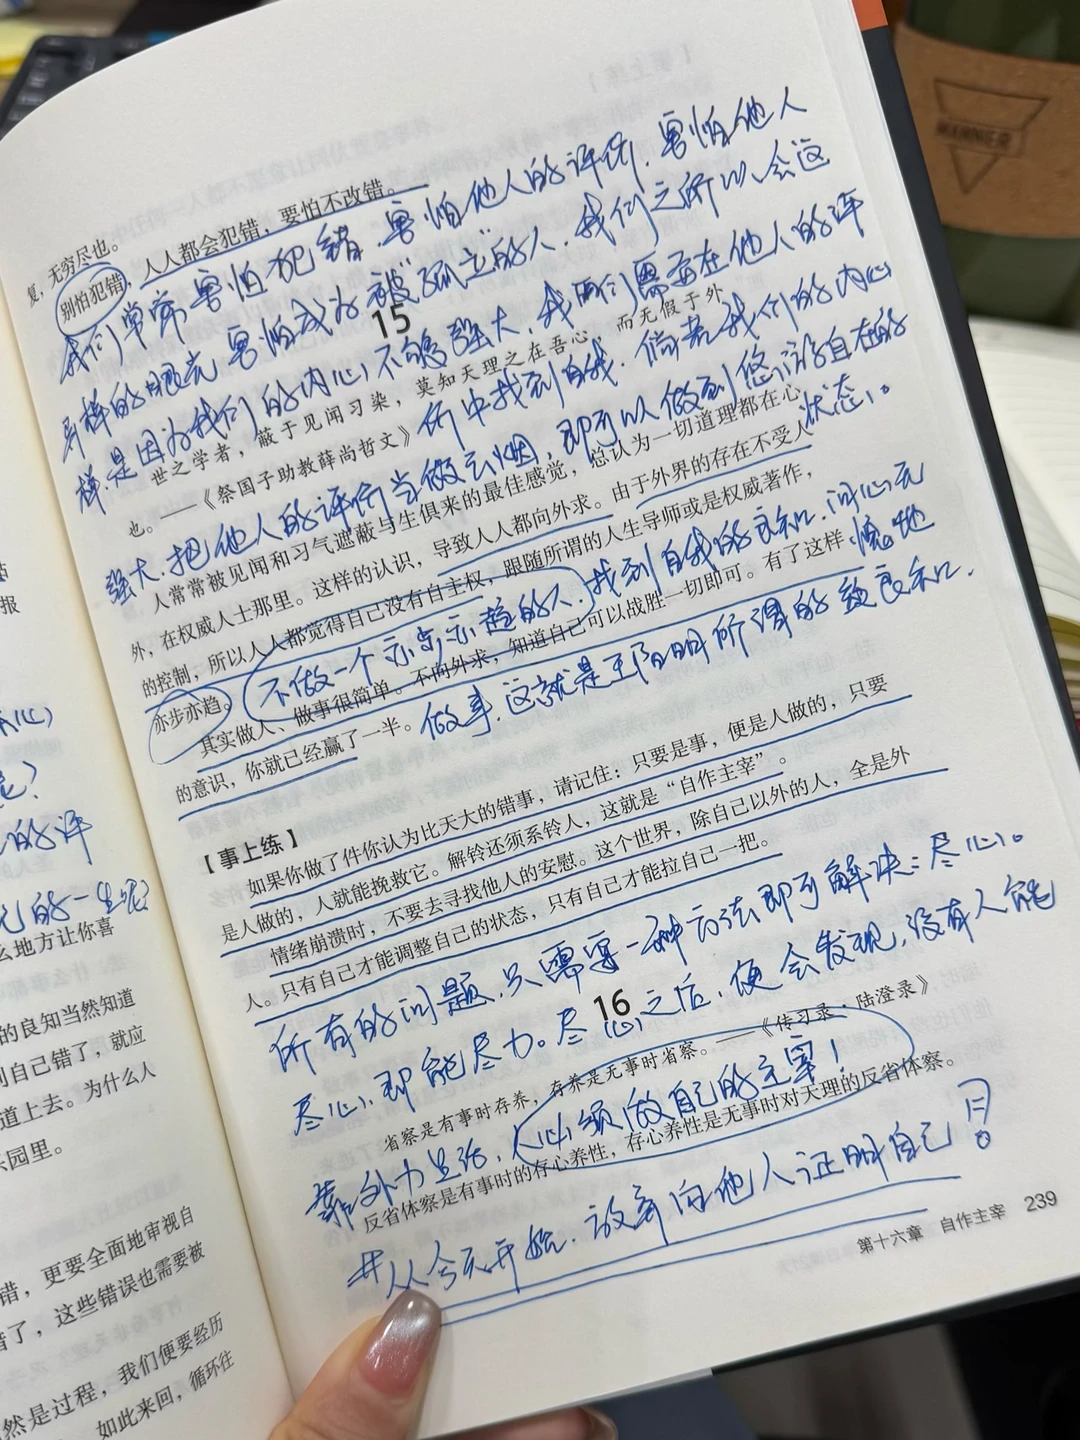 复，无穷尽也。
别怕犯错，人人都会犯错，要怕不改错。
我们常常害怕犯错，害怕他人的评价，害怕他人
异样的眼光，害怕成为被“孤立”的人，我们之所以会这
15
样，是因为我们的内心不够强大，我们需要在他人的评
世之学者，蔽于见闻习染，莫知天理之在吾心，而无假于外
价中找到自我，倘若我们的内心
也。——《祭国子助教薛尚哲文》
强大，把他人的评价当做云烟，即可以做到悠游自在的
状态。
人常常被见闻和习气遮蔽与生俱来的最佳感觉，总认为一切道理都在心
外，在权威人士那里。这样的认识，导致人人都向外求。由于外界的存在不受人
的控制，所以人人都觉得自己没有自主权，跟随所谓的人生导师或是权威著作，
亦步亦趋。
不做一个亦步亦趋的人，找到自我的良知，问心无愧地
其实做人、做事很简单。不向外求，知道自己可以战胜一切即可。有了这样
的意识，你就已经赢了一半。
做事，这就是王阳明所谓的致良知。
【事上练】
如果你做了件你认为比天大的错事，请记住：只要是事，便是人做的，只要
是人做的，人就能挽救它。解铃还须系铃人，这就是“自作主宰”。
情绪崩溃时，不要去寻找他人的安慰。这个世界，除自己以外的人，全是外
人。只有自己才能调整自己的状态，只有自己才能拉自己一把。
所有的问题，只需要一种方法即可解决：尽心。
16
尽心，即能尽力。尽心之后，便会发现，没有人能
省察是有事时存养，存养是无事时省察。——《传习录·陆澄录》
靠外力生活，必须做自己的主宰！
反省体察是有事时的存心养性，存心养性是无事时对天理的反省体察。
#从今天开始，放弃向他人证明自己！
第十六章 自作主宰 239
报
的评
的一生呢？
么地方让你喜
的良知当然知道
到自己错了，就应
道上去。为什么人
乐园里。
错，更要全面地审视自
错了，这些错误也需要被
然是过程，我们便要经历
如此来回，循环往